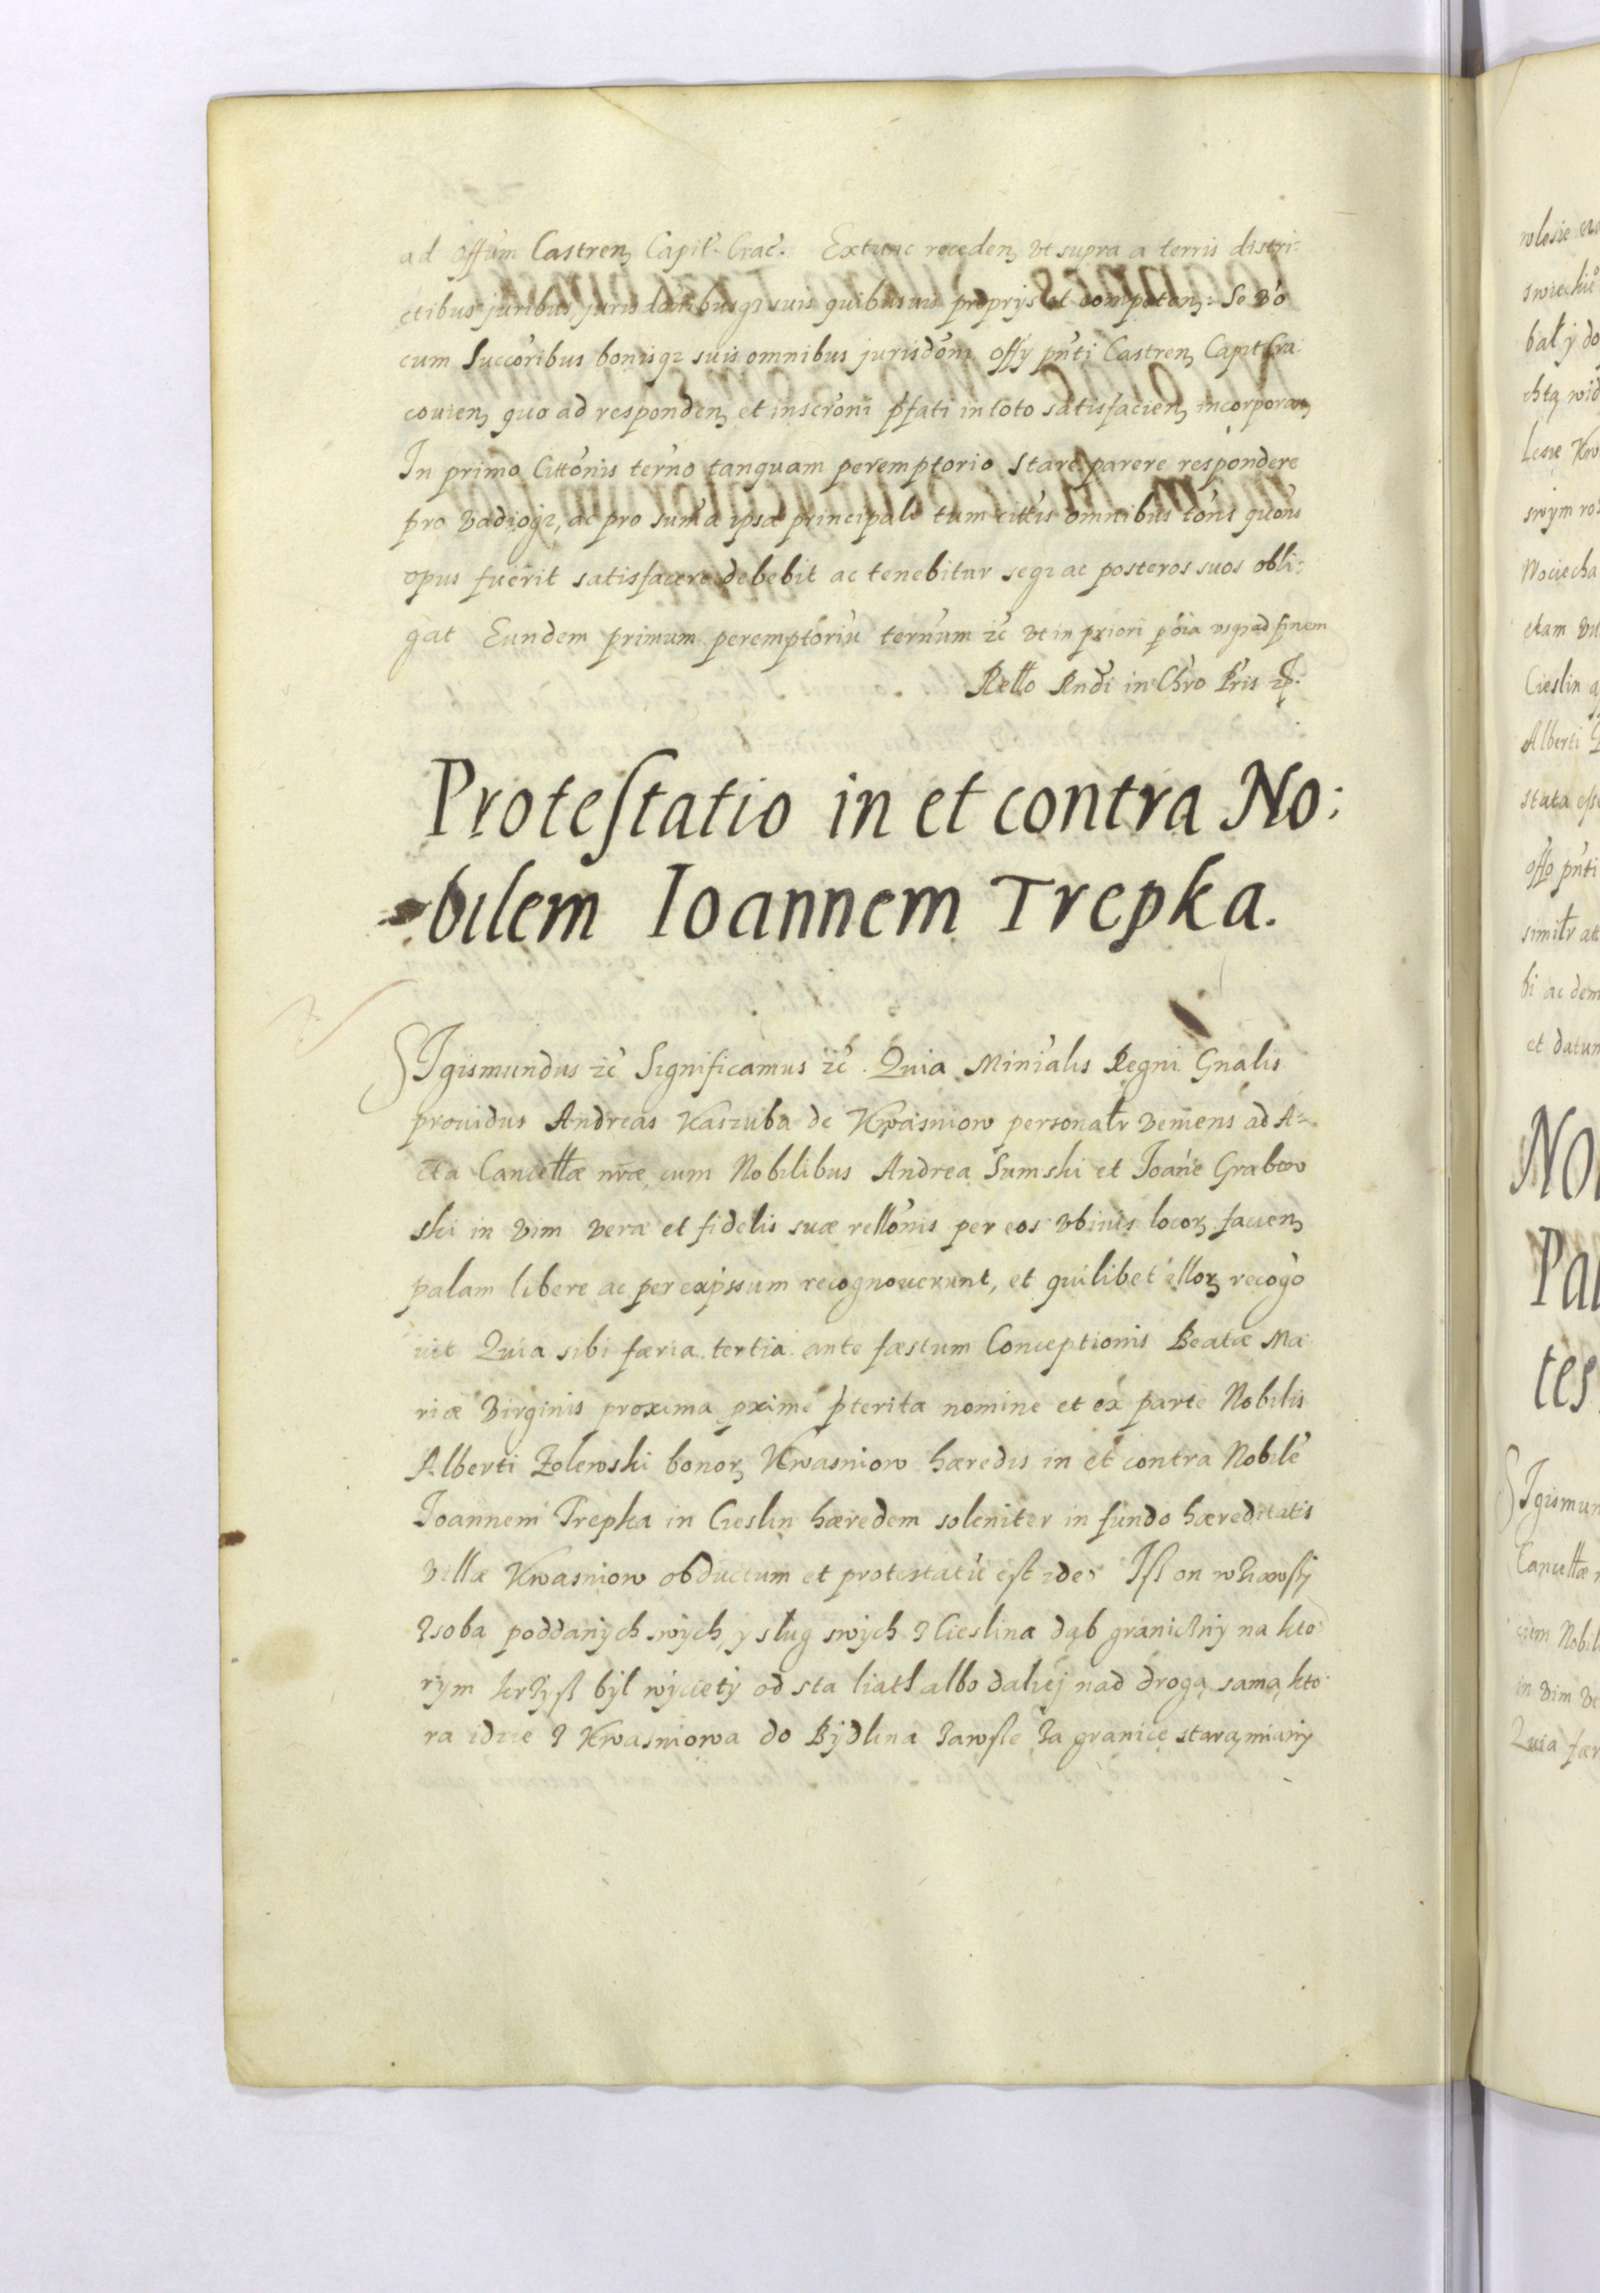 ad Offũm Castren̄ Capit̃. Crac̃. Extunc receden̄ vt supra a terris distri:
ctibus juribus jurisdõnibusq₃ suis quibusuis proprijs et competen̄: Se v̊o
cum Succõribus bonisq₃ suis omnibus jurisdõni Offij pñti Castren̄ Capit̃ Cra
couien̄ quo ad responden̄ et inscrõni p̃fati in toto satisfacien̄ incorporan̄
In primo Citt̃onis ter̃no tanquam peremptorio stare parere respondere
pro vadijoq₃, ac pro sum̃a ipsa principali tum citt̃is omnibus tõns quõns
opus fuerit satisfacere debebit ac tenebitur seq₃ ac posteros suos obli:
gat Eundem primum peremptõriũ ter̃num zc̃ vt in priori p õia vsq₃ ad finem
Rello Rñdi in Chr̃o Pr̃is zc̃.
Protestatio in et contra No:
bilem Ioannem Trepka.
SIgismundus zc̃ Significamus zc̃. Quia Minĩalis Regni Gñalis
prouidus Andreas Kaszuba de Kwasniow personalr̃ veniens ad A:
cta Cancellæ nr̃æ cum Nobilibus Andrea Sumski et Joañe Grabow
ski in vim veræ et fidelis suæ rellõnis per eos vbiuis locor̃ facien̄
palam libere ac per expssum recognouerunt, et quilibet ellor̃ recogõ
uit Quia sibi færia tertia ante fæstum Conceptionis Beatæ Ma
riæ Virginis proxima pxime p̃terita nomine et ex parte Nobilis
Alberti Zolewski bonor̃ Kwasniow hæredis in et contra Nobilẽ
Joannem Trepka in Cieslin hæredem soleniter in fundo hæreditatis
villæ Kwasniow obductum et protestatũ est ides Jsz on wziąwszy
zsoba poddanÿch swÿch, y sług swych z Cieslina dąb graniczny na kto
rym krzysz był wycięty od sta liath albo daliej nad drogą samą kto
ra idzie z Kwasniowa do Bydlina zawsze za granicę starą miany